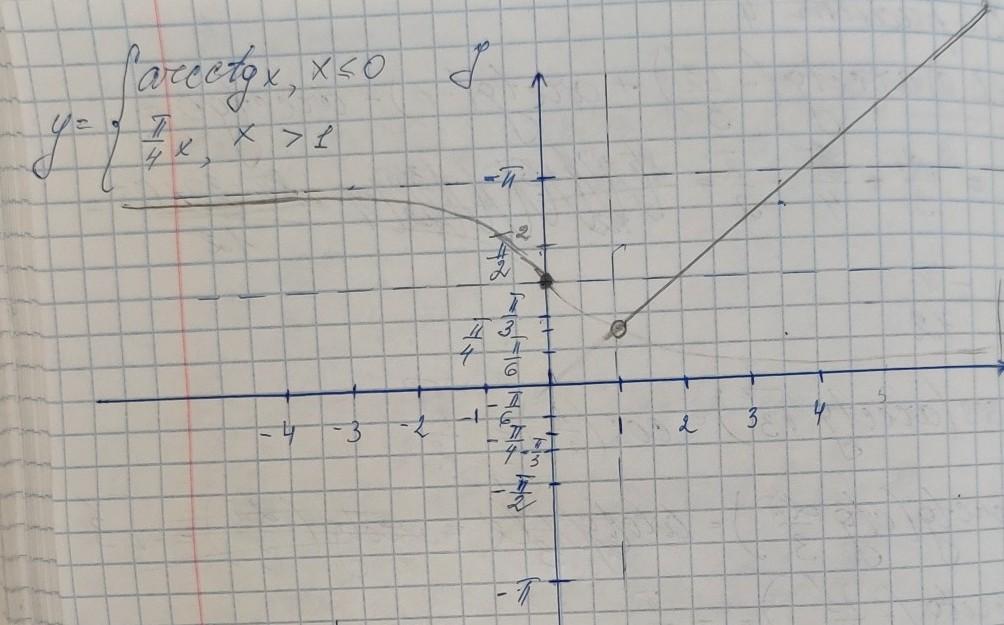 y = { arcctg x, x ≤ 0
π/4 x, x > 1
y
-π
2
π/2
π/3
π/4
π/6
-4 -3 -2 -1 1 2 3 4 5
-π/6
-π/4
-π/3
-π/2
-π